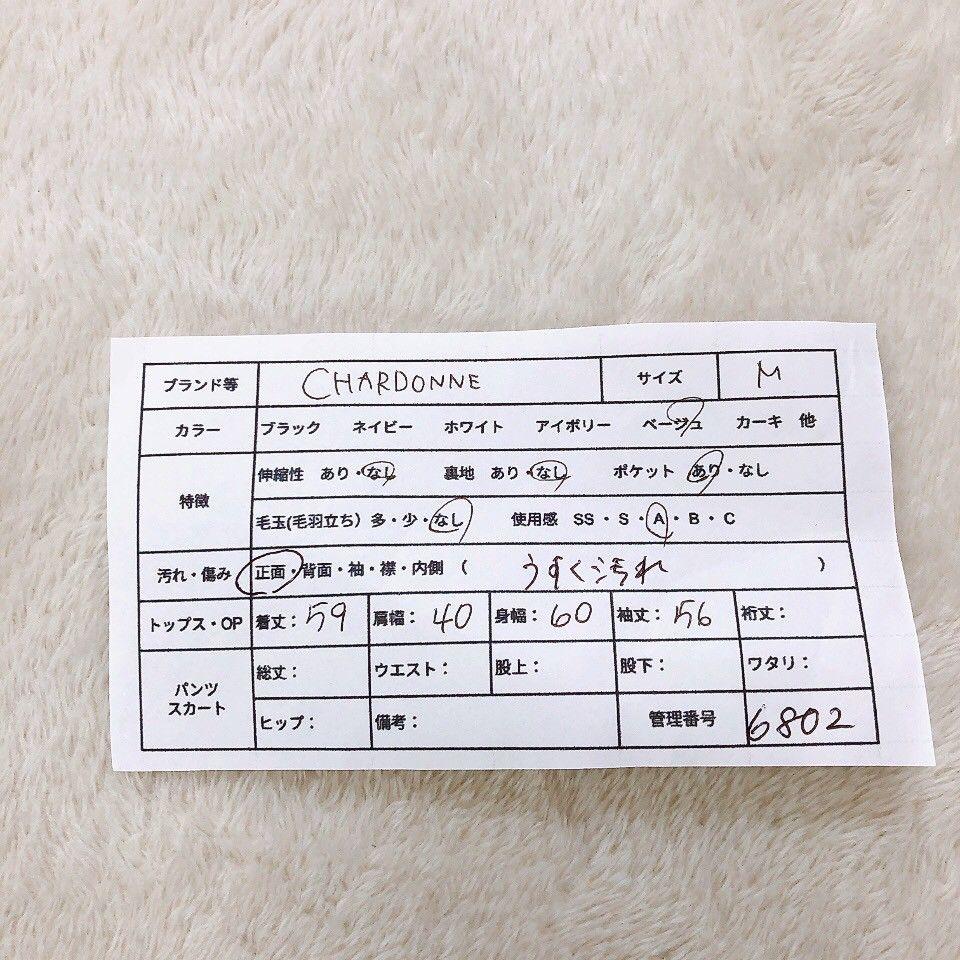 ブランド等 CHARDONNE サイズ M
カラー ブラック ネイビー ホワイト アイボリー ベージュ カーキ 他
特徴 伸縮性 あり・なし 裏地 あり・なし ポケット あり・なし
毛玉(毛羽立ち) 多・少・なし 使用感 SS・S・A・B・C
汚れ・傷み 正面・背面・袖・襟・内側 ( うすく汚れ )
トップス・OP 着丈: 59 肩幅: 40 身幅: 60 袖丈: 56 裄丈:
パンツ スカート 総丈: ウエスト: 股上: 股下: ワタリ:
ヒップ: 備考: 管理番号 6802